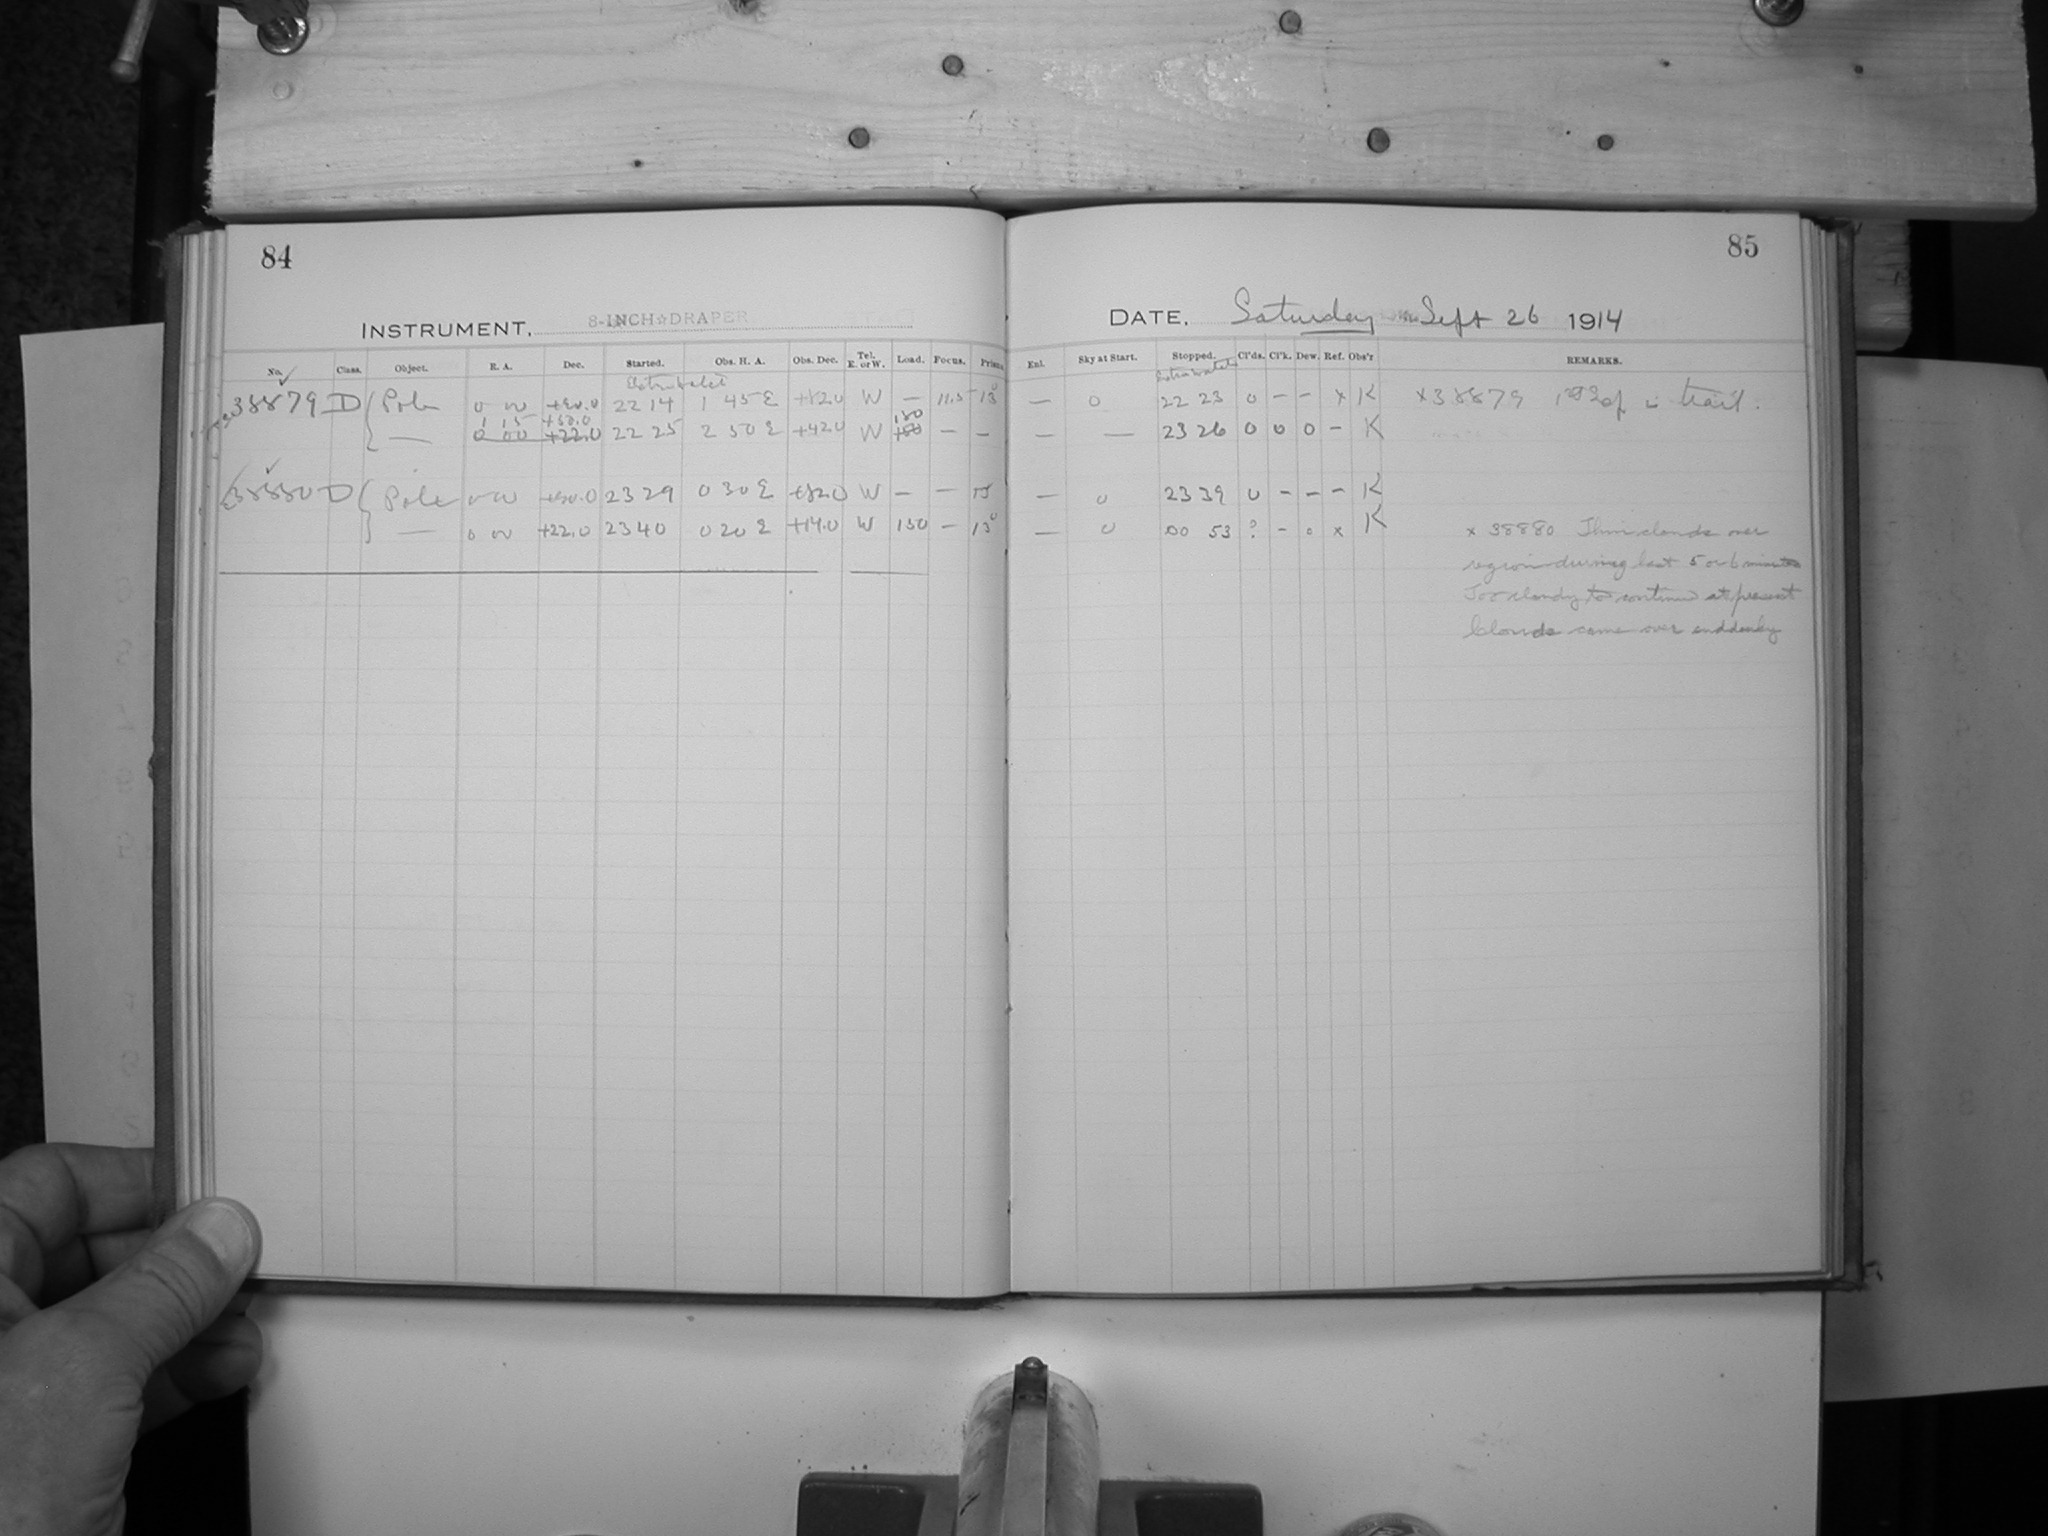 84
85
INSTRUMENT, 8-INCH☆DRAPER
DATE, Saturday Sept 26 1914
No. Class. Object. R. A. Dec. Started. Obs. H. A. Obs. Dec. Tel. E. or W. Load. Focus. Prism
Enl. Sky at Start. Stopped. Cl'ds. Cl'k. Dew. Ref. Obs'r REMARKS.
38879 D Pole 0 00 +90.0 22 14 1 45 E +82.0 W — 11.5 13° — 0 22 23 0 — — x K x 38879 in trail.
1 15 +50.0 150
— 0 00 +22.0 22 25 2 50 E +42.0 W — — — — 23 26 0 0 0 — K
38880 D Pole 0 00 +90.0 23 29 0 30 E +82.0 W — — 15 — 0 23 39 0 — — — K
— 0 00 +22.0 23 40 0 20 E +14.0 W 150 — 13° — 0 00 53 ? — 0 x K x 38880 Thin clouds over
region during last 5 or 6 minutes
Too cloudy to continue at present
Clouds came over suddenly